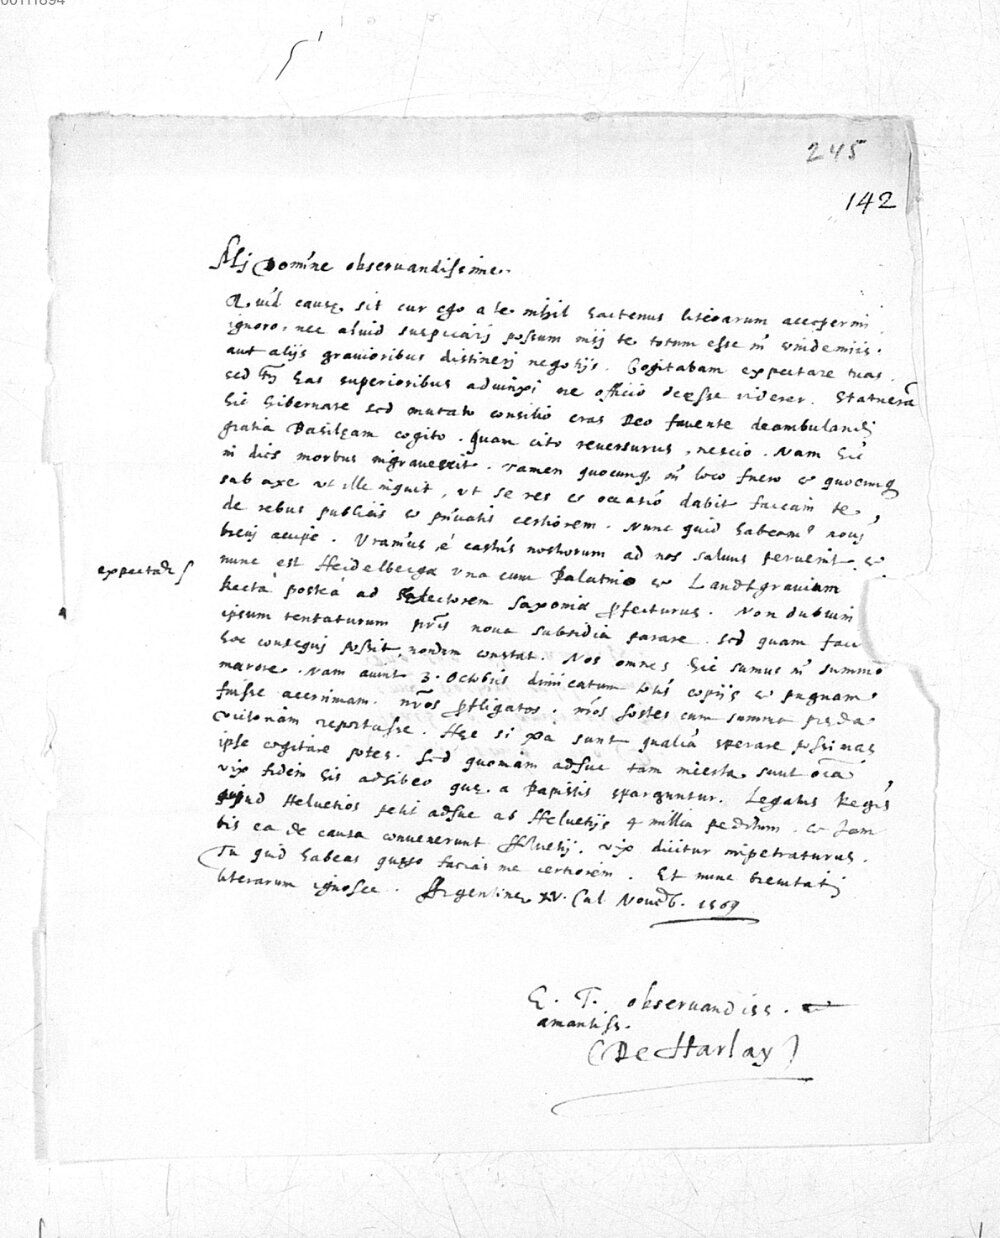 00111894
245
142
Mj Domine observandissime.
Quid causę sit cur ego a te nihil hactenus literarum acceperim
ignoro, nec aliud suspicarj possum nisj te totum esse in vindemiis.
aut alijs gravioribus distinerj negotijs. Cogitabam expectare tuas
sed tñ has superioribus adiunxi ne officio deesse viderer. Statuerā
hic hibernare sed mutato consilio cras Deo favente deambulandj
gratia Basilęam cogito. Quam cito reversurus, nescio. Nam hic
in dies morbus ingravescit. Tamen quocunq in loco fuero et quocunq
sub axe ut ille inquit, ut se res et occasio dabit faciam te
de rebus publicis et privatis certiorem. Nunc quid habeam novj
brevj accipe. è castris nostrorum ad nos salvus pervenit et
nunc est Heidelbergæ una cum Palatino et Landtgravium
expectads
Rectà posteà ad Electorem Saxoniæ pfecturus. Non dubium
ipsum tentaturum nova subsidia parare. sed quam faci
hoc consequj possit nondum constat. Nos omnes hic sumus in summo
mærore. Nam aiunt 3. Octobris dimicatum totis copijs et pugnam
fuisse acerrimam. nr̃os pfligatos. nr̃os hostes cum summa pręda
victoriam reportasse. Hęc si vera sunt qualia sperare possimus
ipse cogitare potes. Sed quoniam adhuc tam incerta sunt oĩa
vix fidem his adhibeo quę a Papistis sparguntur. Legatus Regis
apud Helvetios petit adhuc ab Helvetijs 4 millia peditum. et jam
bis ea de causa convenerunt Helvetij. vix dicitur impetraturus.
Tu quid habeas quęso facias me certiorem. Et nunc brevitatj
literarum ignosce. Argentinę XV. Cal Novẽb. 1569
E. T. observandiss. et
amantiss.
De Harlay